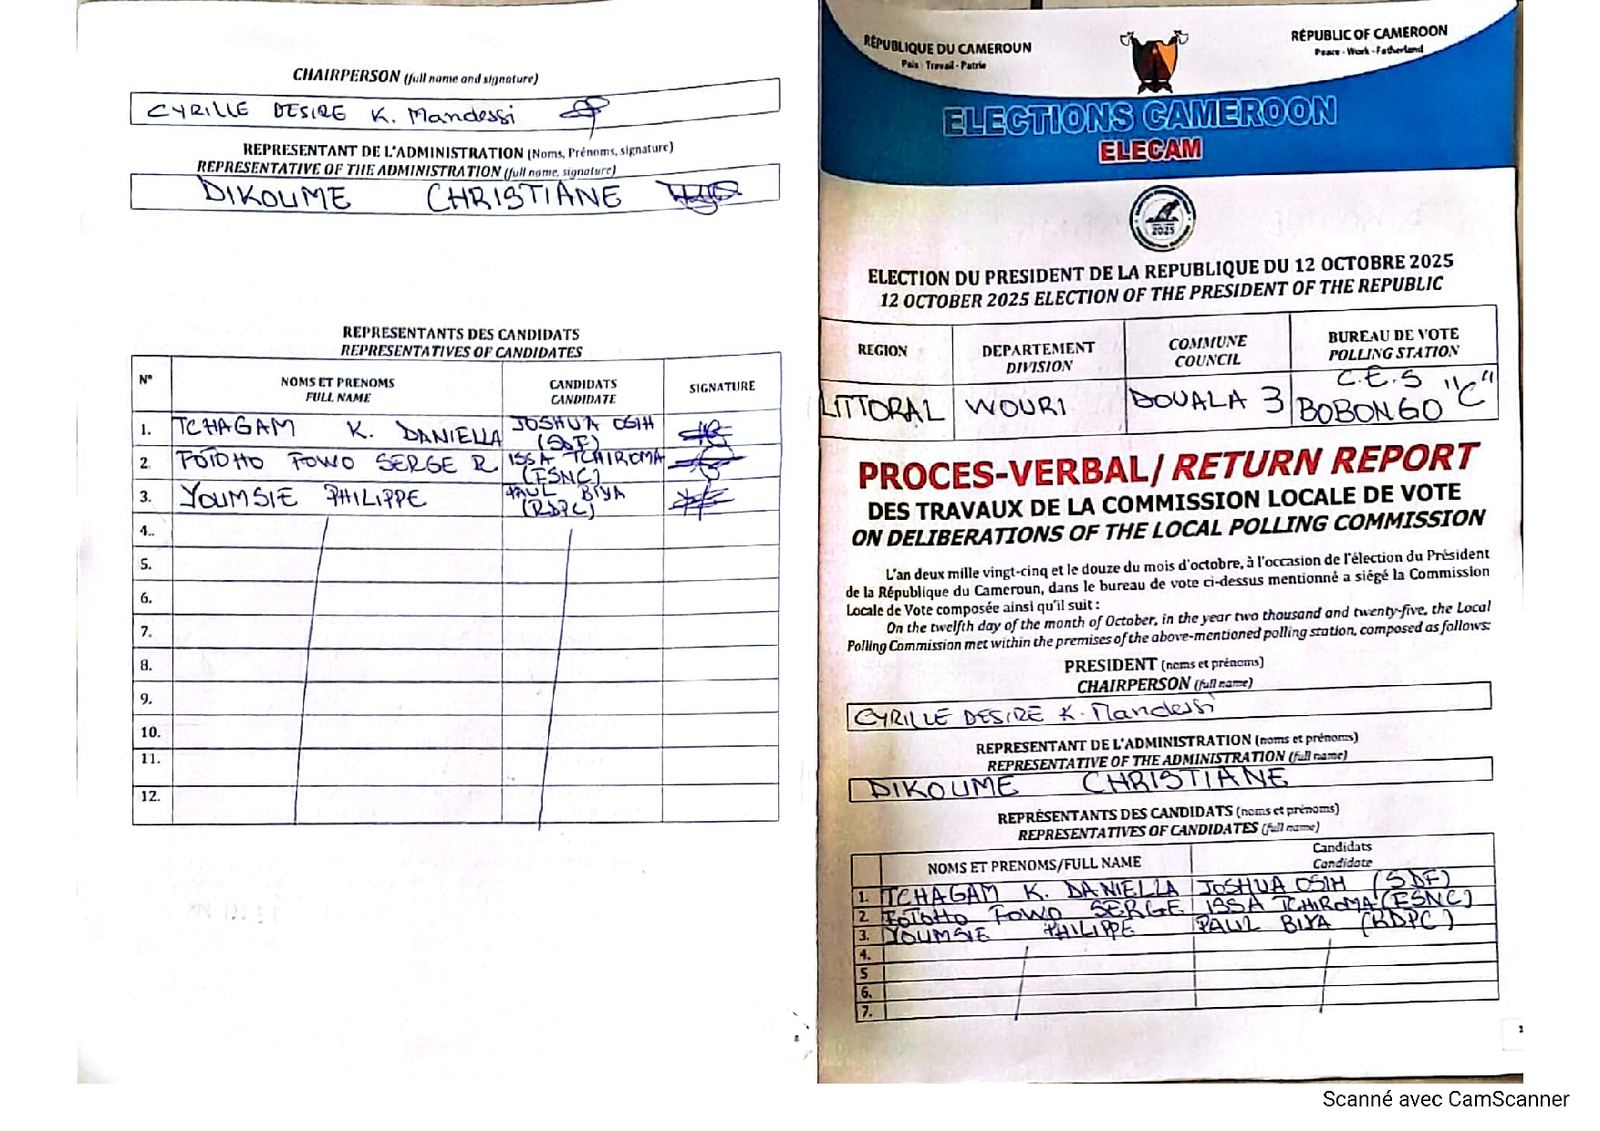 CHAIRPERSON (full name and signature)
CYRILLE DESIRE K. Mandessi
REPRESENTANT DE L'ADMINISTRATION (Noms, Prénoms, signature)
REPRESENTATIVE OF THE ADMINISTRATION (full name, signature)
DIKOUME CHRISTIANE
REPRESENTANTS DES CANDIDATS
REPRESENTATIVES OF CANDIDATES
N° NOMS ET PRENOMS FULL NAME CANDIDATS CANDIDATE SIGNATURE
1. TCHAGAM K. DANIELLA JOSHUA OSIH (SDF)
2. FOTOHO FOWO SERGE R ISSA TCHIROMA (FSNC)
3. YOUMSIE PHILIPPE PAUL BIYA (RDPC)
4..
5.
6.
7.
8.
9.
10.
11.
12.
8
RÉPUBLIQUE DU CAMEROUN
Paix - Travail - Patrie
RÉPUBLIC OF CAMEROON
Peace - Work - Fatherland
ELECTIONS CAMEROON
ELECAM
2025
ELECTION DU PRESIDENT DE LA REPUBLIQUE DU 12 OCTOBRE 2025
12 OCTOBER 2025 ELECTION OF THE PRESIDENT OF THE REPUBLIC
REGION DEPARTEMENT DIVISION COMMUNE COUNCIL BUREAU DE VOTE POLLING STATION
LITTORAL WOURI DOUALA 3 C.E.S BOBONGO "C"
PROCES-VERBAL/ RETURN REPORT
DES TRAVAUX DE LA COMMISSION LOCALE DE VOTE
ON DELIBERATIONS OF THE LOCAL POLLING COMMISSION
L'an deux mille vingt-cinq et le douze du mois d'octobre, à l'occasion de l'élection du Président
de la République du Cameroun, dans le bureau de vote ci-dessus mentionné a siégé la Commission
Locale de Vote composée ainsi qu'il suit :
On the twelfth day of the month of October, in the year two thousand and twenty-five, the Local
Polling Commission met within the premises of the above-mentioned polling station, composed as follows:
PRESIDENT (noms et prénoms)
CHAIRPERSON (full name)
CYRILLE DESIRE K. Mandessi
REPRESENTANT DE L'ADMINISTRATION (noms et prénoms)
REPRESENTATIVE OF THE ADMINISTRATION (full name)
DIKOUME CHRISTIANE
REPRÉSENTANTS DES CANDIDATS (noms et prénoms)
REPRESENTATIVES OF CANDIDATES (full name)
NOMS ET PRENOMS/FULL NAME Candidats Candidate
1. TCHAGAM K. DANIELLA JOSHUA OSIH (SDF)
2. FOTOHO FOWO SERGE ISSA TCHIROMA (FSNC)
3. YOUMSIE PHILIPPE PAUL BIYA (RDPC)
4.
5
6.
7.
Scanné avec CamScanner